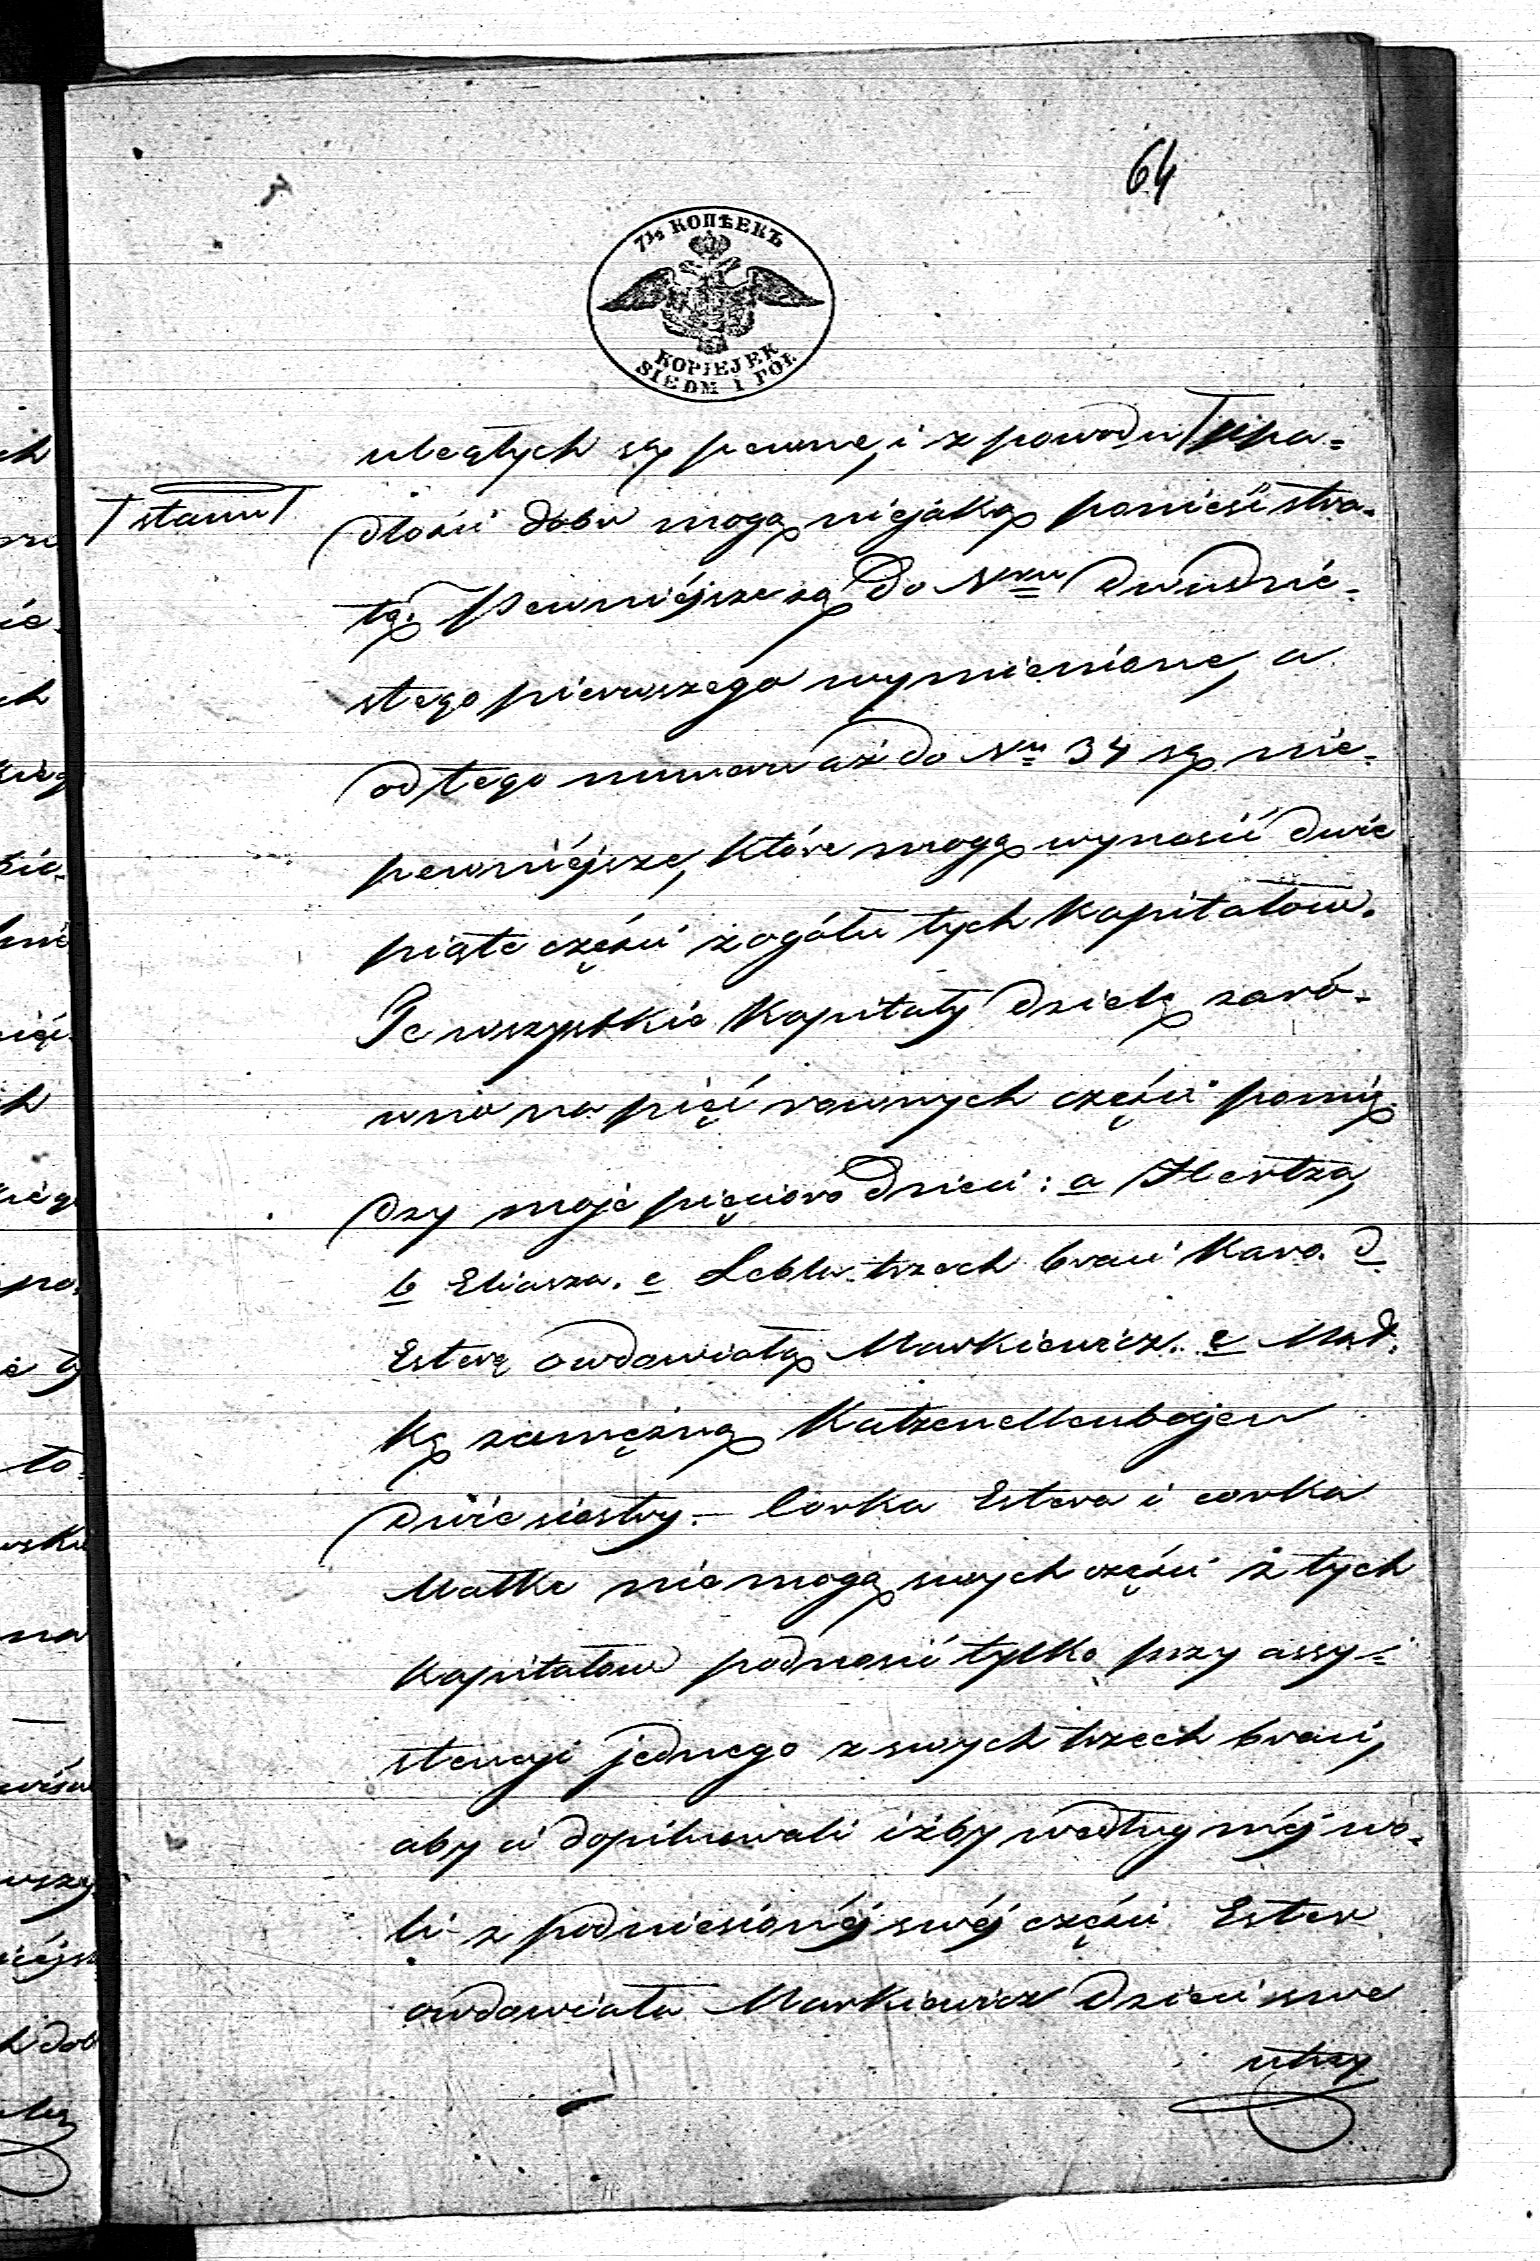 64
7½ КОПѢЕКЪ
KOPIEJEK
SIEDM I PÓŁ
ubeałych są pewne, i z powodu upa-
stanu
dłości dobr mogą niejaką ponieść stra-
tę. Pewniejsze są do Nru dwudzie-
stego pierwszego wymienione, a
od tego numeru aż do Nru 34 są nie-
pewniejsze, które mogą wynosić dwie
piąte części z ogółu tych kapitałow.
Te wszystkie kapitały dzielą zaró-
wno na pięć rownych części pomię-
dzy moje pięcioro dzieci: a Hertza,
b Eliasza. c Lebla trzech braci Karo. d
Esterę owdowiałą Markiewicz. e Mat-
kę zamężną Katzenellenbogen
dwie siostry. – Corka Estera i corka
Matka nie mogą swych części z tych
kapitałow podnosić tylko przy assy-
stencyi jednego z swych trzech braci,
aby ci dopilnowali iżby według méj wo-
li z podniesionéj swéj części Ester
owdowiała Markiewicz dzieci swe
utrzy